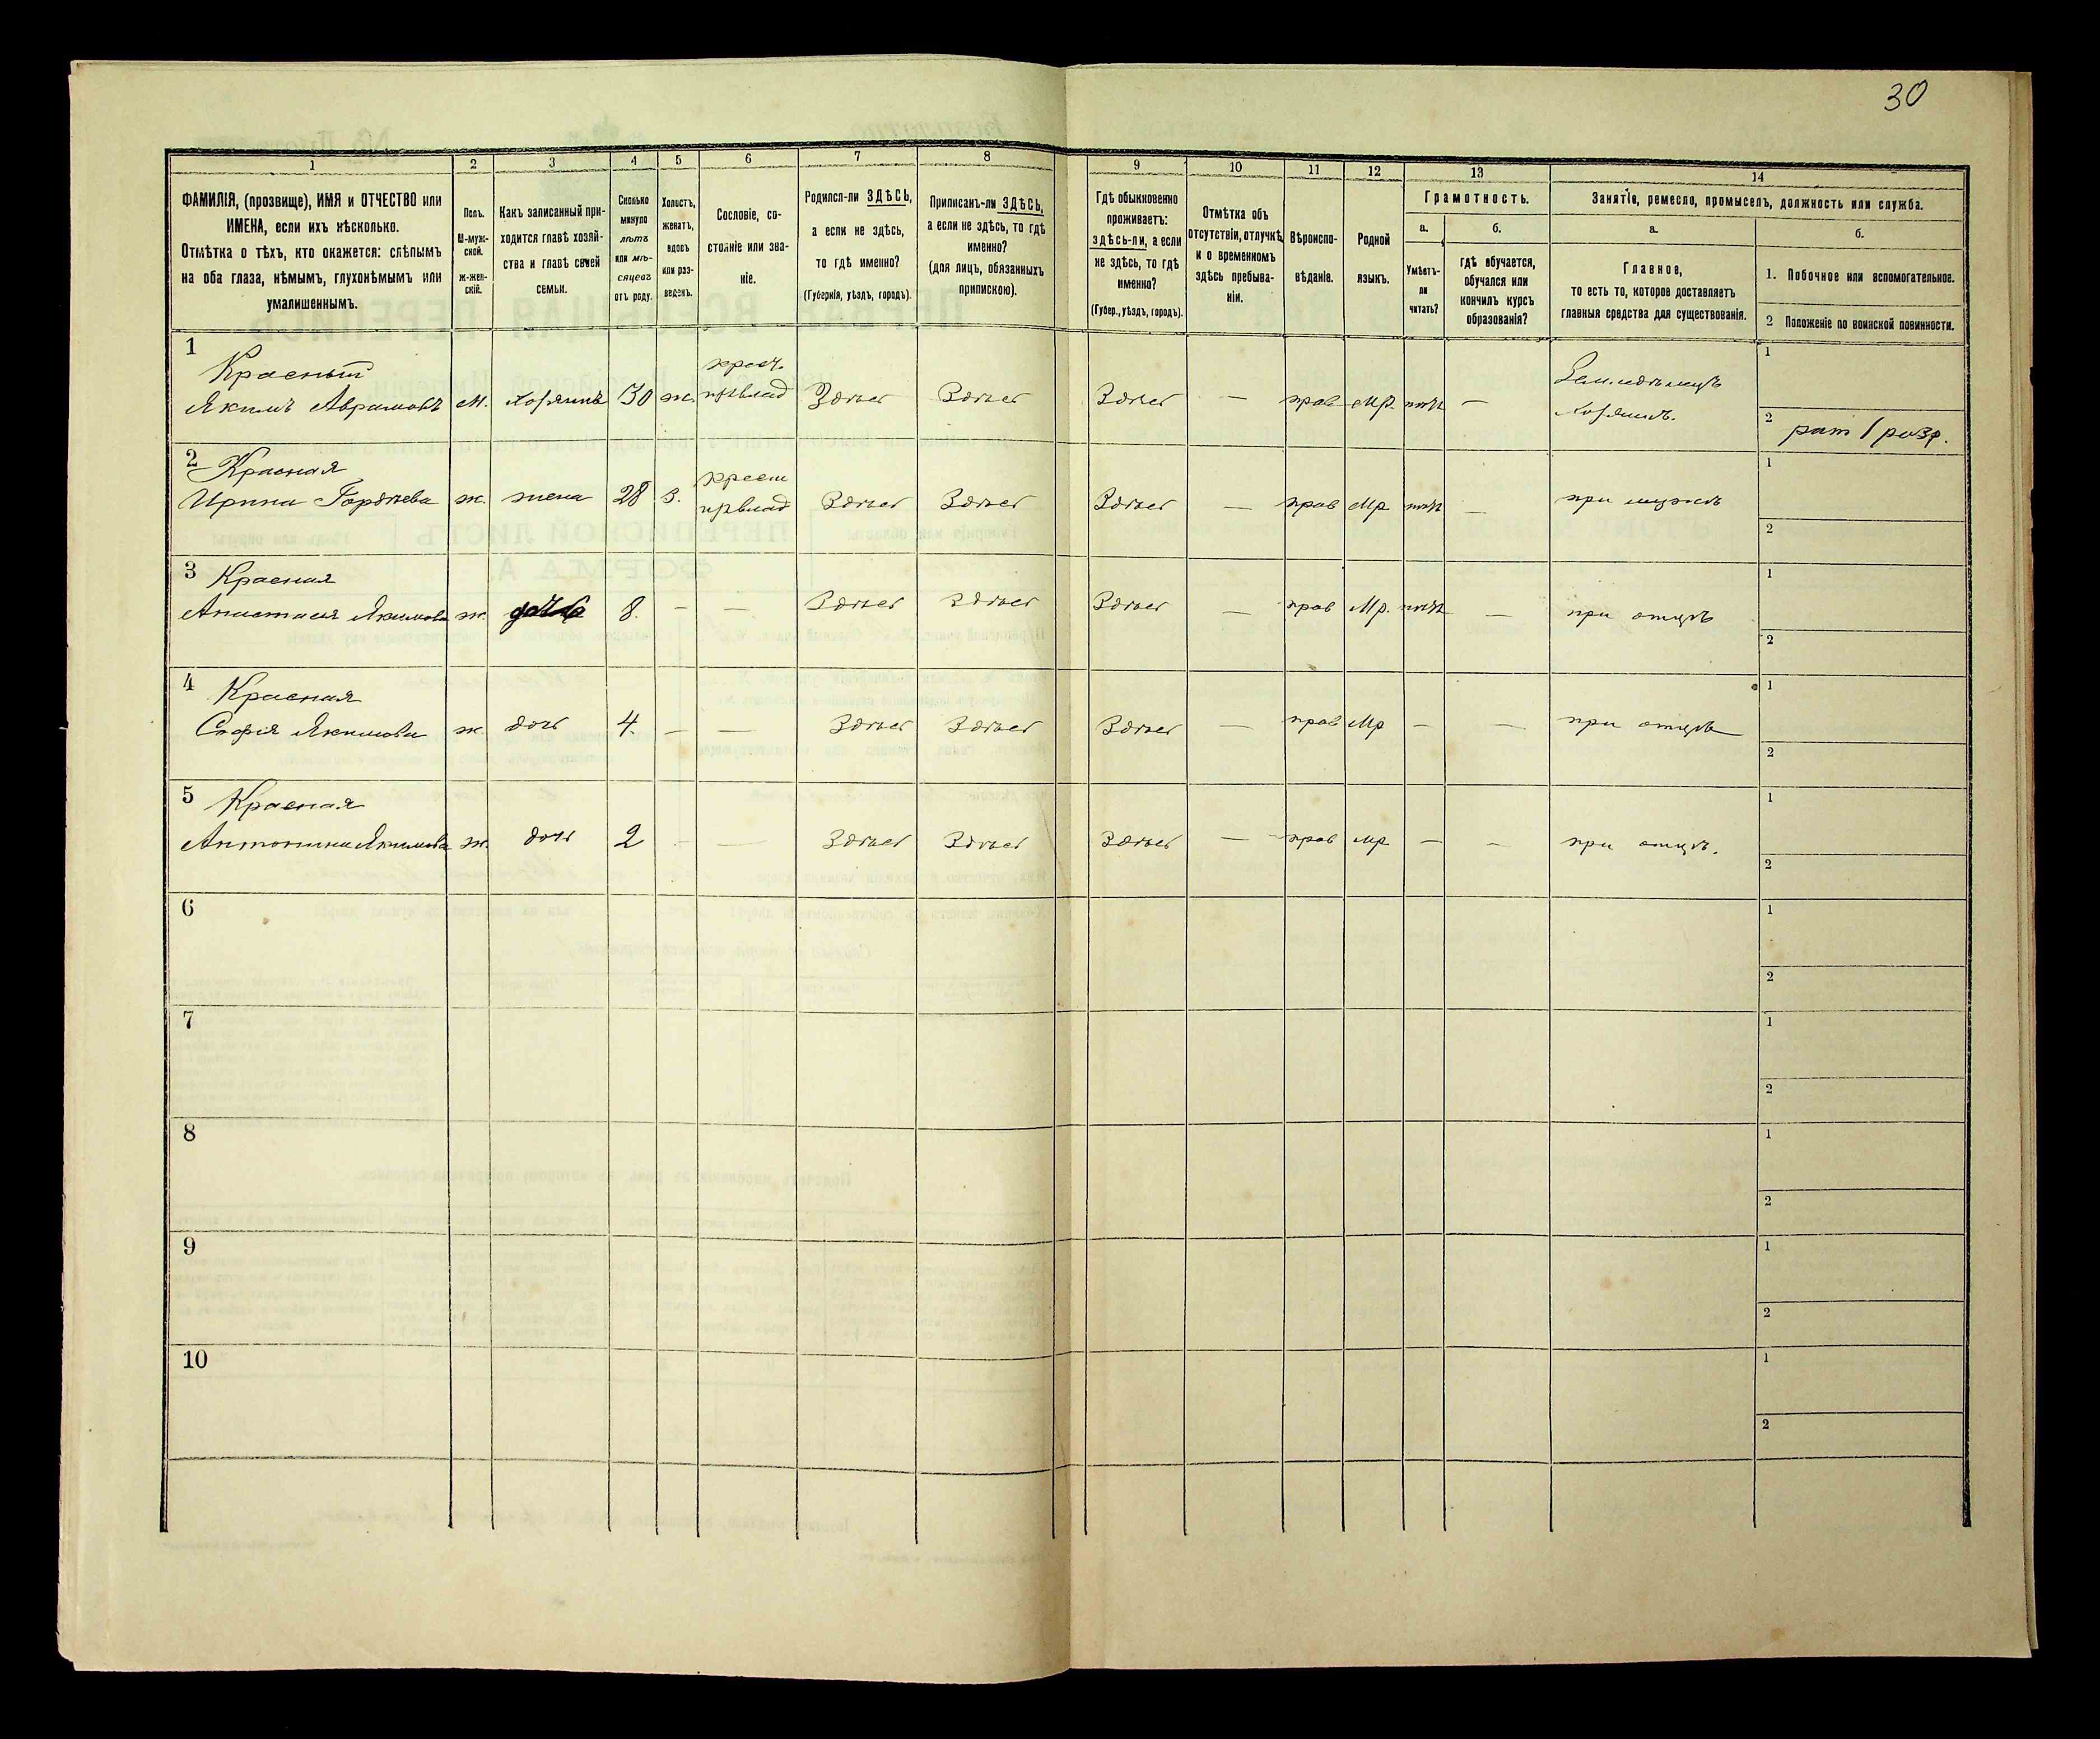 30
1 2 3 4 5 6 7 8 9 10 11 12 13 14
ФАМИЛІЯ, (прозвище), ИМЯ и ОТЧЕСТВО или
ИМЕНА, если ихъ нѣсколько.
Отмѣтка о тѣхъ, кто окажется: слѣпымъ
на оба глаза, нѣмымъ, глухонѣмымъ или
умалишеннымъ.
Полъ.
М-муж-
ской.
ж-жен-
скій.
Какъ записанный при-
ходится главѣ хозяй-
ства и главѣ своей
семьи.
Сколько
минуло
лѣтъ
или мѣ-
сяцевъ
отъ роду.
Холостъ,
женатъ,
вдовъ
или раз-
веденъ.
Сословіе, со-
стояніе или зва-
ніе.
Родился-ли ЗДѢСЬ,
а если не здѣсь,
то гдѣ именно?
(Губернія, уѣздъ, городъ).
Приписанъ-ли ЗДѢСЬ,
а если не здѣсь, то гдѣ
именно?
(для лицъ, обязанныхъ
припискою).
Гдѣ обыкновенно
проживаетъ:
здѣсь-ли, а если
не здѣсь, то гдѣ
именно?
(Губер., уѣздъ, городъ).
Отмѣтка объ
отсутствіи, отлучкѣ
и о временномъ
здѣсь пребыва-
ніи.
Вѣроиспо-
вѣданіе.
Родной
языкъ.
Грамотность.
а.
Умѣетъ-
ли
читать?
б.
гдѣ обучается,
обучался или
кончилъ курсъ
образованія?
Занятіе, ремесло, промыселъ, должность или служба.
а.
Главное,
то есть то, которое доставляетъ
главныя средства для существованія.
б.
1. Побочное или вспомогательное.
2 Положеніе по воинской повинности.
1 Красный крест. Земледѣлецъ 1
Якимъ Аврамовъ м. хозяинъ 30 ж. Здѣсь Здѣсь Здѣсь — прав мр. — хозяинъ.
2 рат 1 разр.
2 Красная крест 1
Ирина Гордѣева ж. жена 28 з. Здѣсь Здѣсь Здѣсь — прав мр — при мужѣ
2
3 Красная 1
Анастасія Якимова ж. дочь 8. — — Здѣсь Здѣсь Здѣсь — прав Мр. — при отцѣ
2
4 Красная 1
Софія Якимова ж. дочь 4. — — Здѣсь Здѣсь Здѣсь — прав Мр — — при отцѣ
2
5 Красная 1
Антонина Якимова ж. дочь 2 — — Здѣсь Здѣсь Здѣсь — прав мр — — при отцѣ.
2
6 1
2
7 1
2
8 1
2
9 1
2
10 1
2